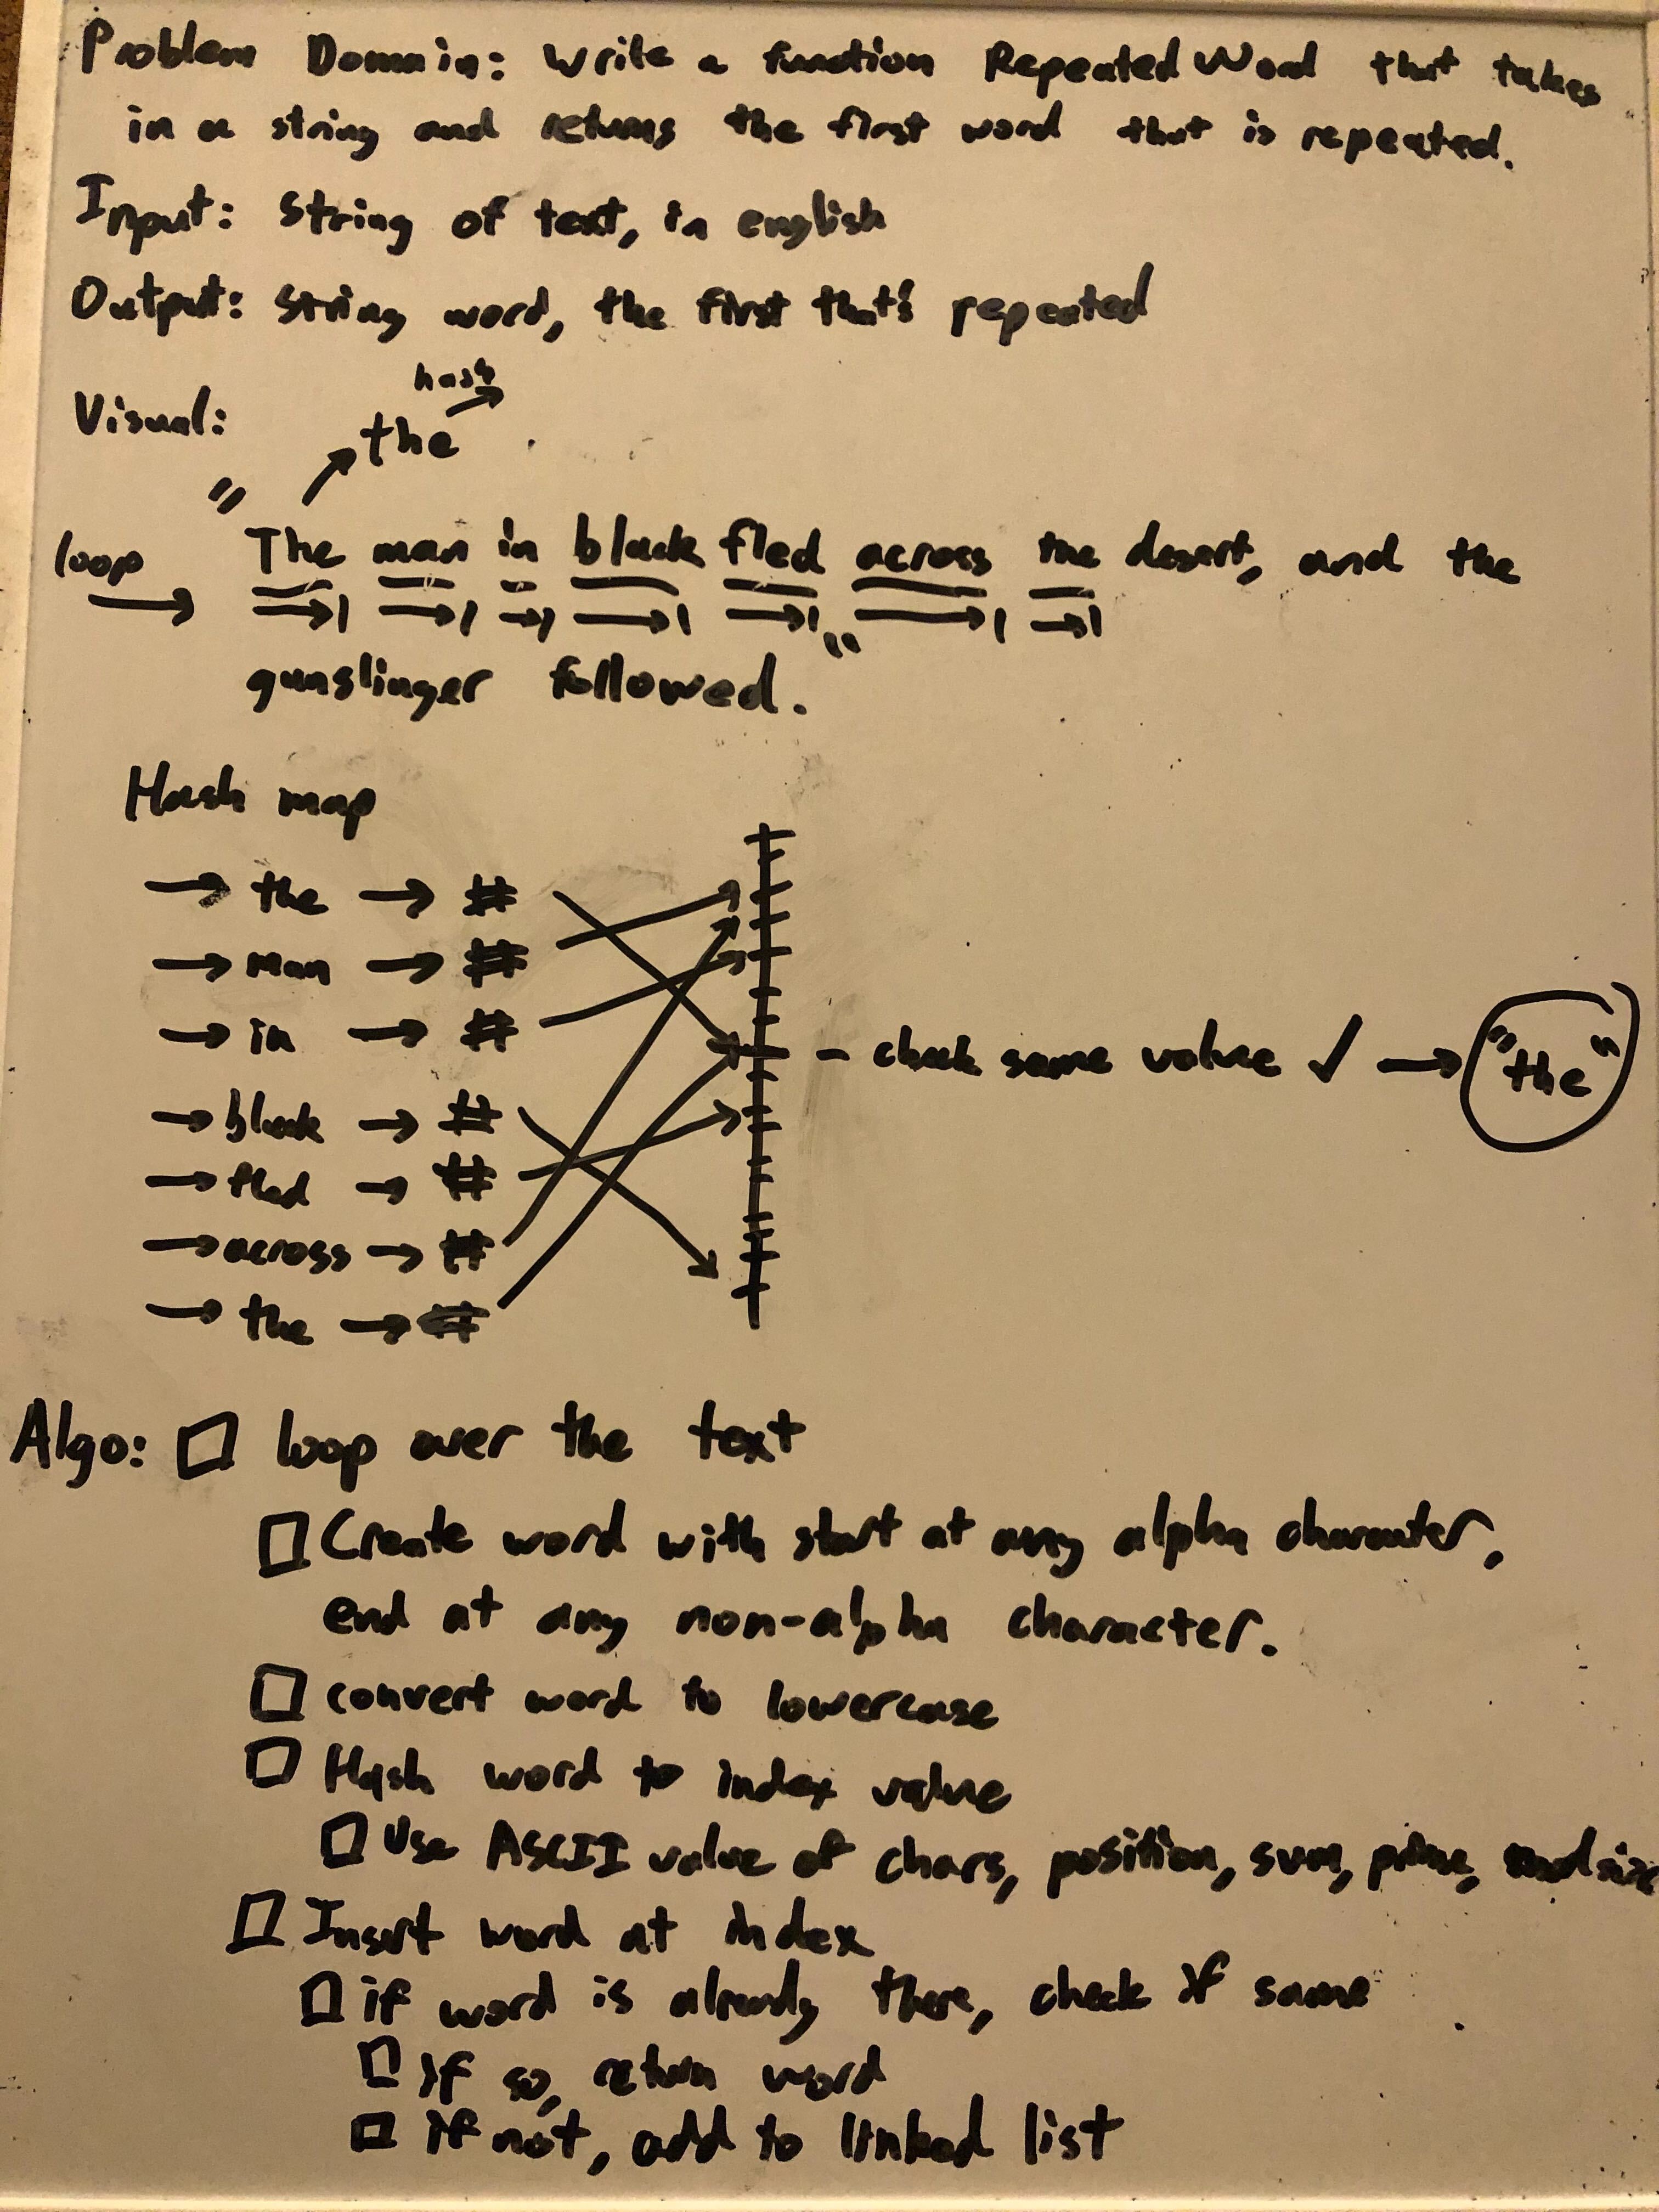 Problem Domain: Write a function RepeatedWord that takes
in a string and returns the first word that is repeated.
Input: String of text, in english
Output: String word, the first that's repeated
Visual:
hash
the
loop
"The man in black fled across the desert, and the
gunslinger followed."
Hash map
the #
man #
in #
- check same value ✓ "the"
black #
fled #
across #
the #
Algo: loop over the text
Create word with start at any alpha character,
end at any non-alpha character.
convert word to lowercase
Hash word to index value
Use ASCII value of chars, position, sum, prime, mod size
Insert word at index
if word is already there, check if same
if so, return word
if not, add to linked list